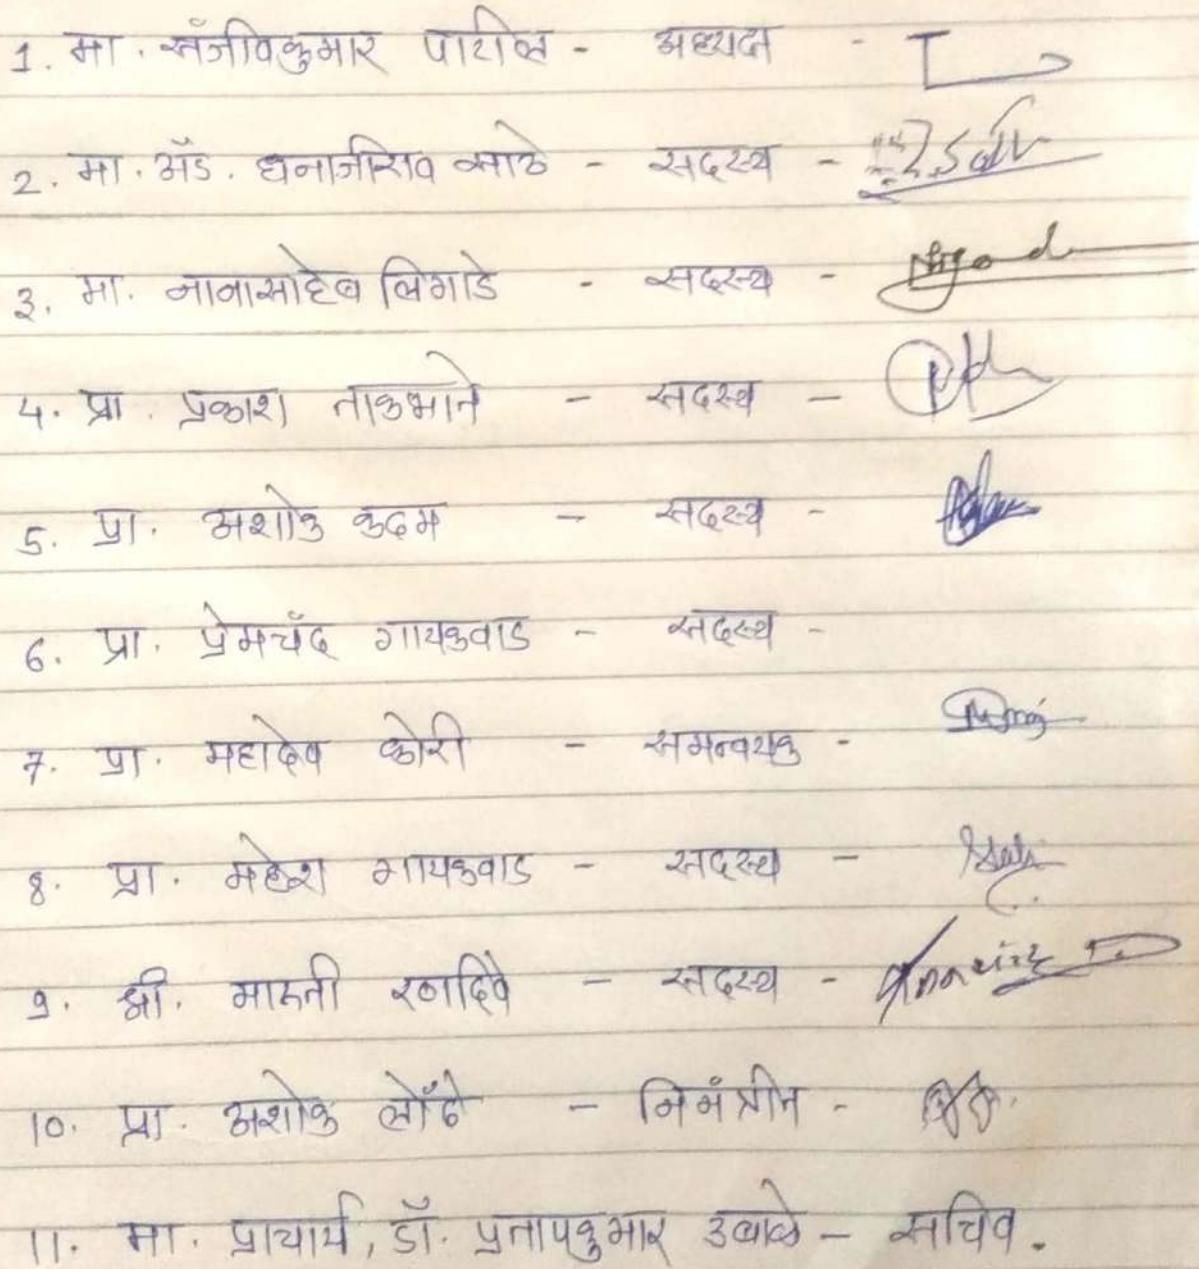 1. मा. संजीवकुमार पाटील - अध्यक्ष -
2. मा. अॅड. धनाजीराव साठे - सदस्य -
3. मा. नानासाहेब लिगाडे - सदस्य -
4. प्रा. प्रकाश ताकभाते - सदस्य -
5. प्रा. अशोक कदम - सदस्य -
6. प्रा. प्रेमचंद गायकवाड - सदस्य -
7. प्रा. महादेव कोरी - समन्वयक -
8. प्रा. महेश गायकवाड - सदस्य -
9. श्री. मारुती रणदिवे - सदस्य -
10. प्रा. अशोक लोंढे - निमंत्रीत -
11. मा. प्राचार्य, डॉ. प्रतापकुमार उबाळे - सचिव.